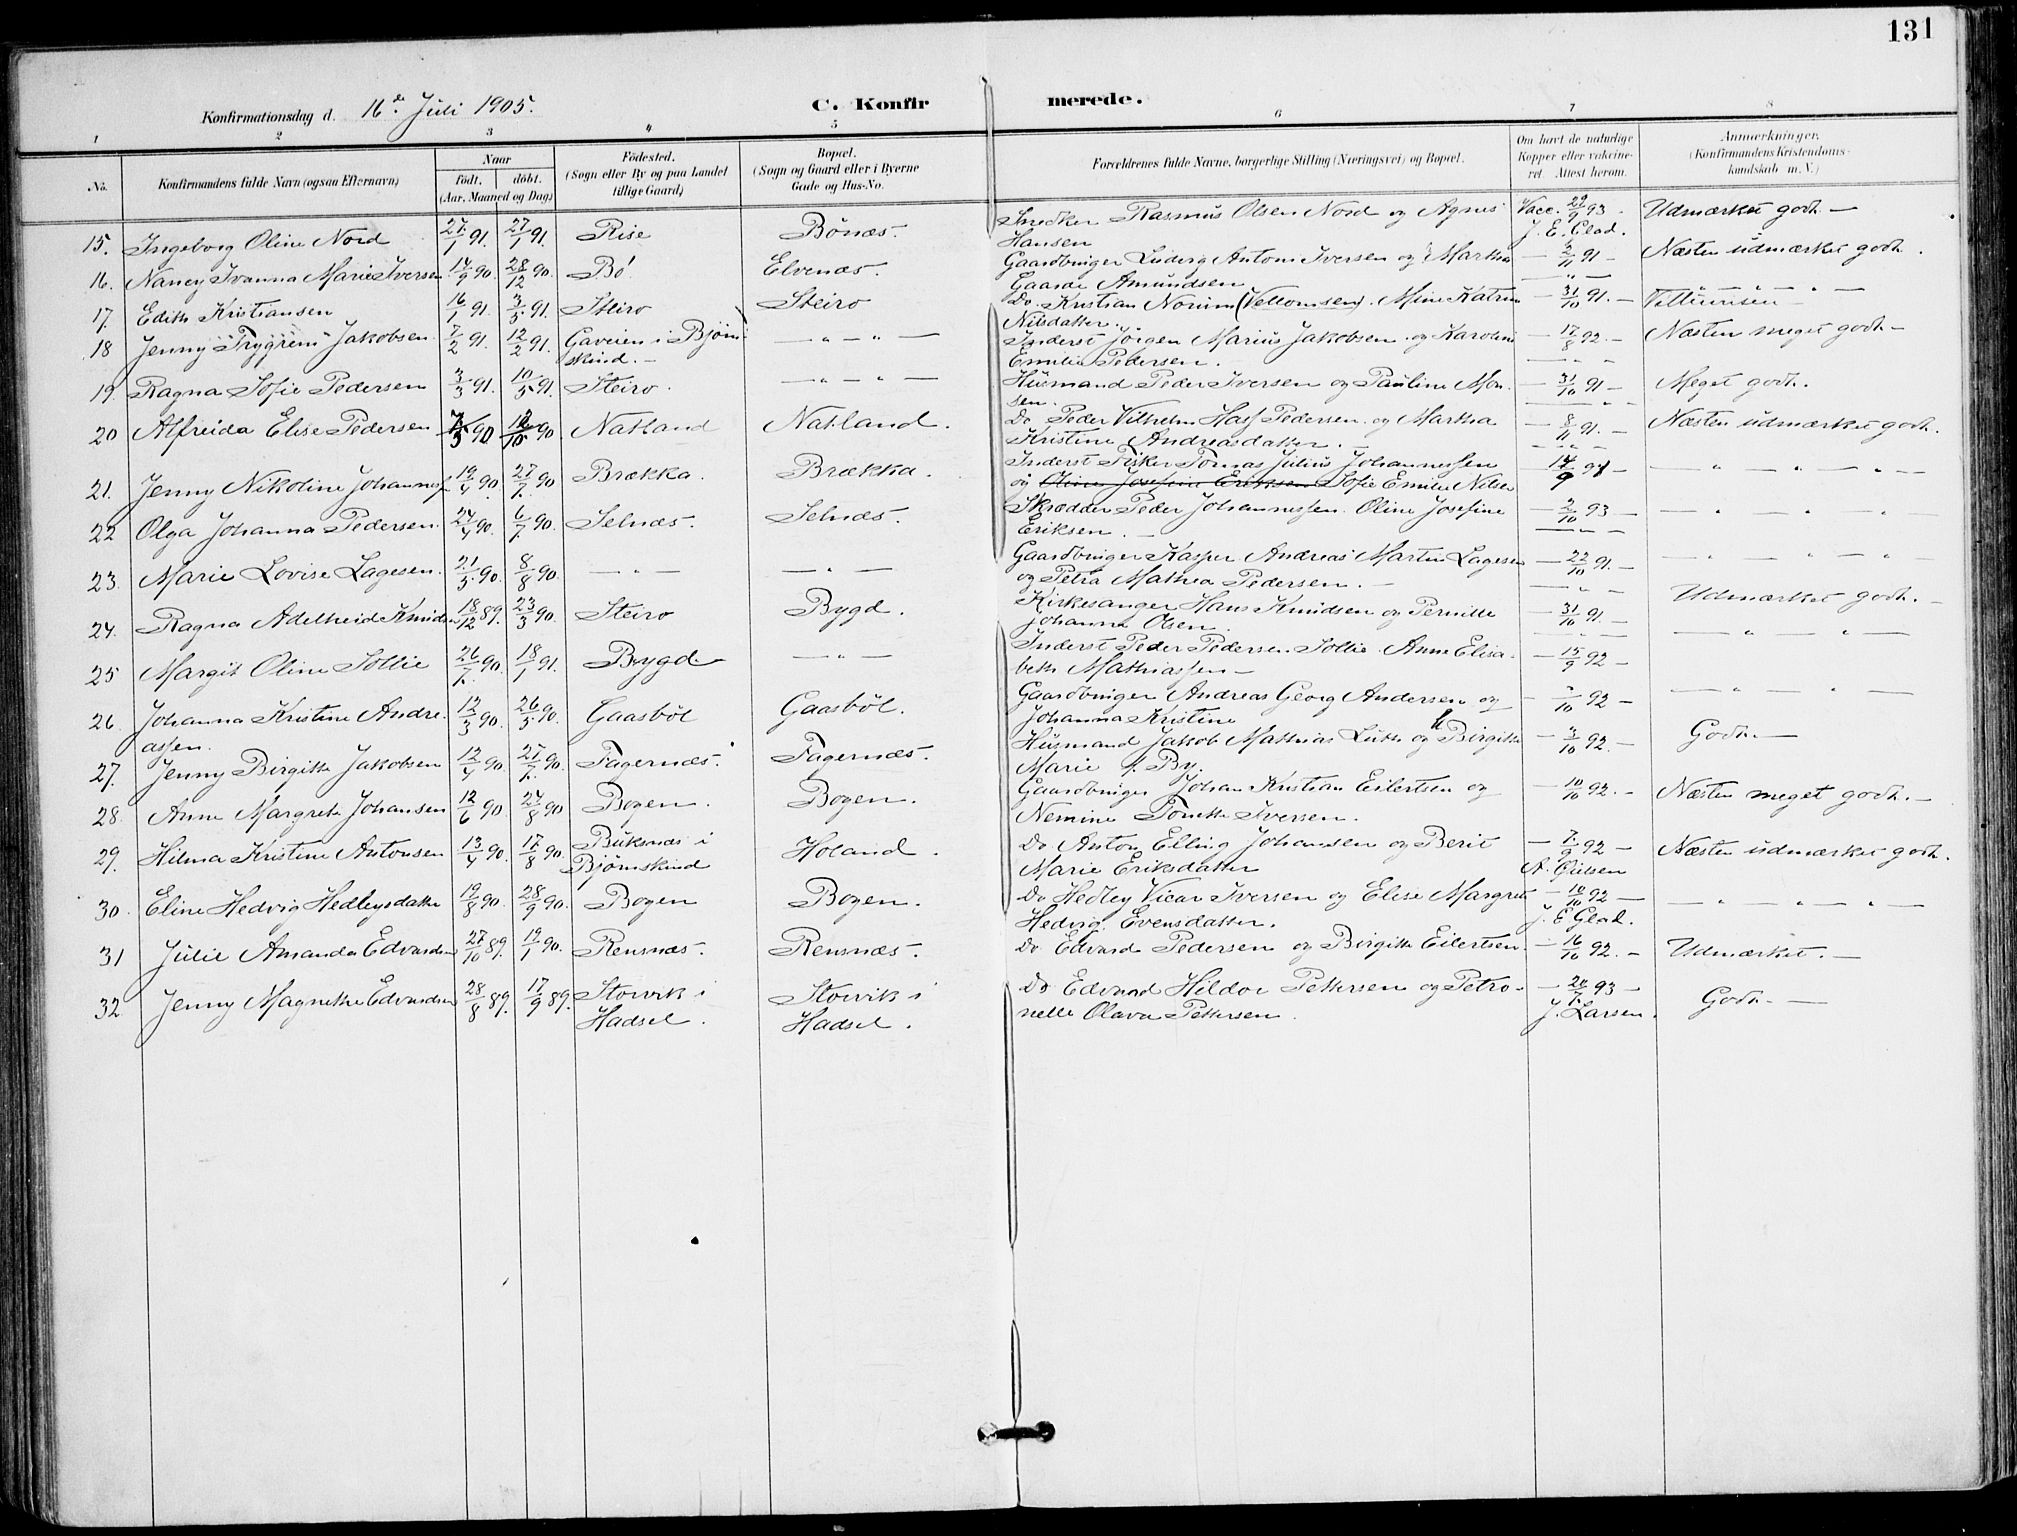 131
Konfirmationsdag d. 16de Juli 1905.
C. Konfirmerede.
1 2 3 4 5 6 7 8
No. Konfirmandens fulde Navn (ogsaa Efternavn) Naar født, døbt. (Aar, Maaned og Dag) Fødested. (Sogn eller By og paa Landet tillige Gaard) Bopæl. (Sogn og Gaard eller i Byerne Gade og Hus-No. Forældrenes fulde Navne, borgerlige Stilling (Næringsvei) og Bopæl. Om havt de naturlige Kopper eller vakcineret. Attest herom. Anmærkninger. (Konfirmandens Kristendomskundskab m. V.)
15. Ingeborg Oline Nord 27/1 91. 27/1 91. Rise Bönæs. Snedker Rasmus Olsen Nord og Agnes Vacc. 22/9 93. Udmærket godt. —
Hansen J. E. Glad.
16. Nancy Ivanna Marie Iversen 14/9 90. 28/12 90. Bö. Elvenæs. Gaardbruger Ludvig Antoni Iversen og Martha — 2/11 91 — Næsten udmærket godt.
Gaarde Amundsen — " —
17. Edith Kristiansen 16/1 91. 3/5 91. Steiro Steiro Do Kristian Norum (Vellomsen). Mine Katrin — 31/10 91. — — " — " —
Nilsdatter.
18 Jenny "Trygrem" Jakobsen. 7/2 91. 12/2 91. Gaveien i Bjørn- — " — " — Inderst Jörgen Marius Jakobsen og Karoline — 17/8 92. — Næsten meget godt —
skind. — Emilie Pedersen. — " —
19. Ragna Sofie Pedersen 3/3 91. 10/5 91. Steiro. — " — " — Husmand Peder Iversen og Pauline Mon- — 31/10 91 — Meget godt.
sen. — " —
20 Alfreida Elise Pedersen 7/5 90 12/10 90. Natland Natland. Do Peder Vilhelm Hass Pedersen og Martha — 8/11 91. — Næsten udmærket godt.
Kristine Andreasdatter. — — " —
21. Jenny Nikoline Johannessen 19/4 90. 27/7 90. Brækka. Brækka. Inderst Fisker Tomas Julius Johannessen 14/9 91 — — " — " — " —
og Oline Josefine Eriksen Sofie Emilie Nilsen
22 Olga Johanna Pedersen. 24/4 90. 6/7 90. Selnæs. Selnæs. Skrædder Peder Johannessen. Oline Josefine — 2/10 93 — — " — " — " —
Eriksen. — — " —
23. Marie Lovise Lagesen. 21/5 90. 8/8 90. — " — — " — Gaardbruger Kasper Andreas Martin Lagesen — 22/10 91. — — " — " — " —
og Petra Mathea Pedersen. — — " —
24. Ragna Adelheid Knudsen 18/12 89. 23/3 90. Steiro Bygd. Kirkesanger Hans Knudsen og Pernille — 31/10 91 — Udmærket godt. —
Johanna Olsen. — " —
25 Margit Oline Sollie 26/7 90. 18/1 91. Bygd. — " — Inderst Peder Pedersen Sollie. Anne Elisa- — 15/9 92 — — " — " —
beth Mathiassen —
26. Johanna Kristine Andre- 12/3 90. 26/5 90. Gaasböl Gaasböl. Gaardbruger Andreas Georg Andersen og — 7/10 92 — — " — " —
assen. Johanna Kristine
27. Jenny Birgitte Jakobsen 12/4 90. 27/7 90. Fagernæs. Fagernæs. Husmand Jakob Mathias Luth og Birgitte — 3/10 92. — Godt. —
Marie f. By.
28. Anne Margrete Johansen 12/6 90. 24/8 90 Bogen. Bogen. Gaardbruger Johan Kristian Eilertsen og — 10/10 92. — Næsten meget godt. —
Nemine Tomette Iversen.
29. Hilma Kristine Antonsen 13/4 90. 17/8 90. Buksnæs i Holand. Do Anton Elling Johansen og Berit — 7/9 92 — Næsten udmærket godt.
Bjørnskind Marie Eriksdatter A. Gulsen
30. Eline Hedvig Hedleysdatter 19/8 90. 28/9 90. Bogen Bogen. Do Hedley Vicar Iversen og Elise Margrete — 10/10 92 — — " — " — " —
Hedvig Evensdatter. J. E. Glad.
31 Julie Amanda Edvardsen 27/10 89. 19/1 90. Rensnæs. Rensnæs. Do Edvard Pedersen og Birgitte Eilertsen — 16/10 92. — Udmærket. —
32 Jenny Magnethe Edvardsen 28/8 89. 17/9 89. Storvik i Storvik i Do Edvard Hildor Pettersen og Petro- — 20/7 93 — Godt. —
Hadsel. Hadsel. nelle Olava Pettersen. J. Larsen.